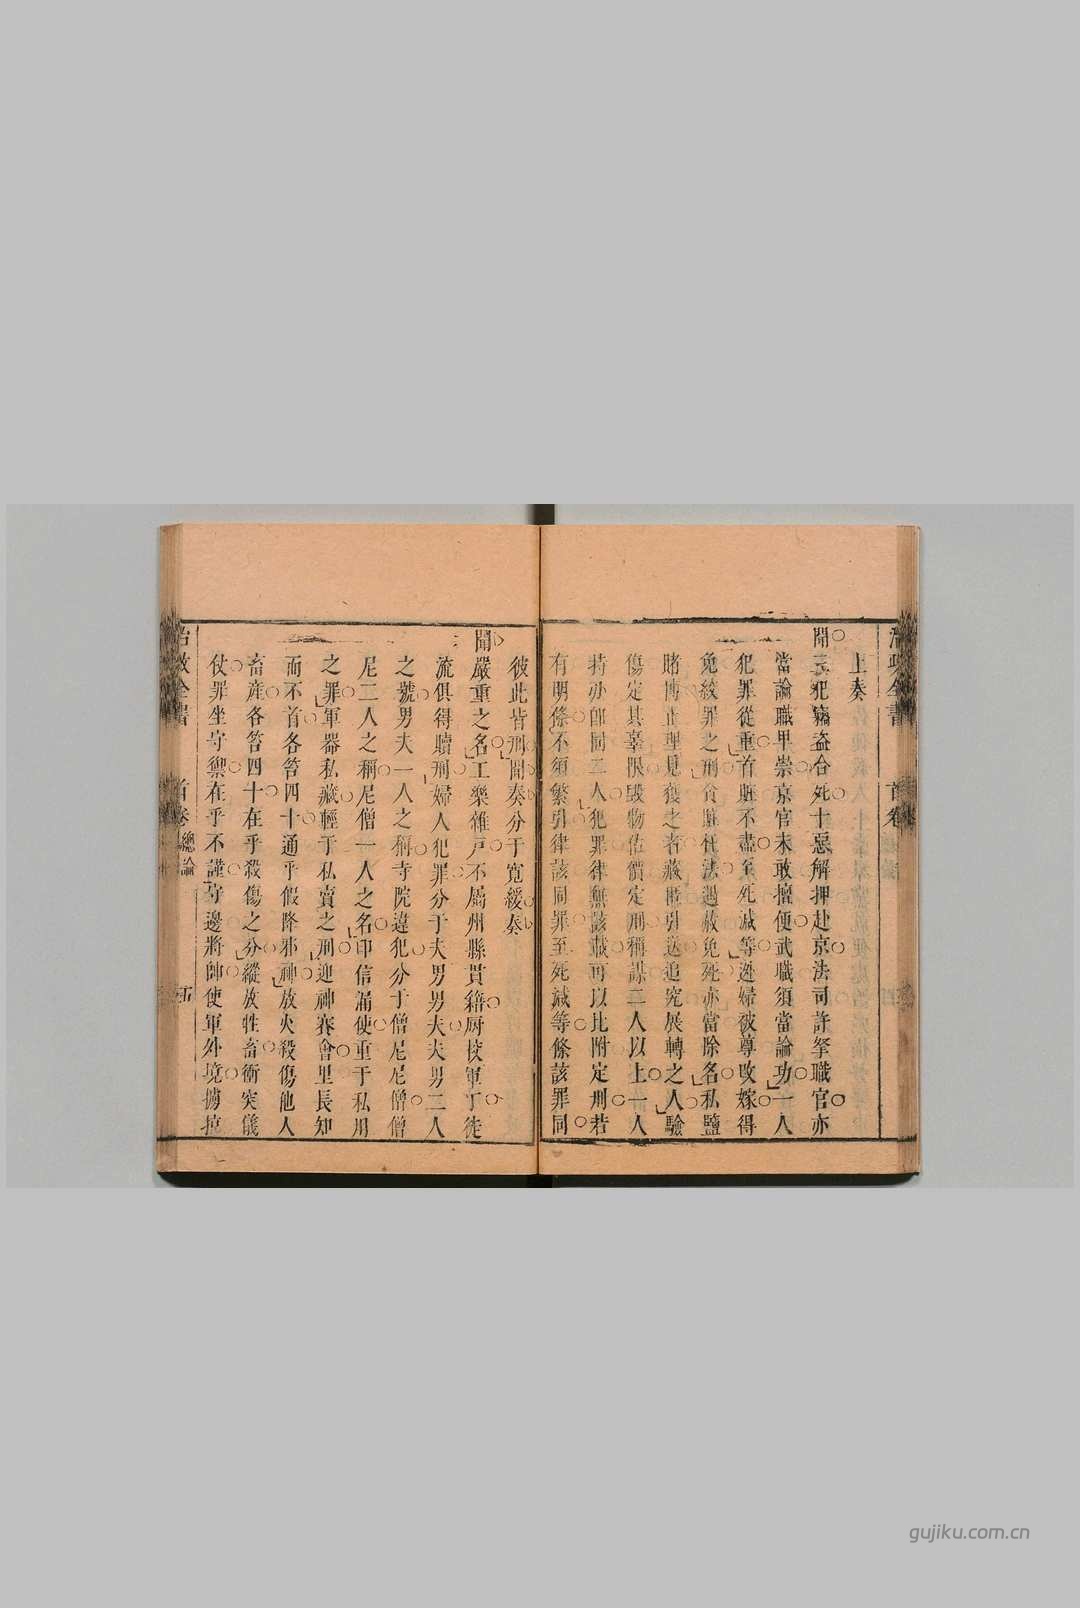 治政全書 首卷
上奏
聞三犯竊盜合死十惡解押赴京法司許拏職官亦
當論職甲崇京官未敢擅便武職須當論功一人
犯罪從重首賍不盡至死減等逃婦被尊改嫁得
免絞罪之刑貪賍枉法遇赦免死亦當除名私鹽
賭博止理見獲之者藏匿引送追究展轉之人驗
傷定其辜限毀物估價定刑稱謀二人以上一人
特亦即同二人犯罪律無該載可以比附定刑若
有明條不須繁引律該同罪至死減等條該罪同
彼此皆刑聞奏分于寬緩奏
聞嚴重之名工樂雜戶不屬州縣貫籍厨役軍丁徒
流俱得贖刑婦人犯罪分于夫男男夫夫男二人
之號男夫一人之稱寺院違犯分于僧尼尼僧僧
尼二人之稱尼僧一人之名印信漏使重于私用
之罪軍器私藏輕于私賣之刑迎神賽會里長知
而不首各笞四十通乎假降邪神放火殺傷他人
畜産各笞四十在乎殺傷之分縱放牲畜衝突儀
仗罪坐守禦在乎不謹守邊將帥使軍外境擄掠
治政全書 首卷 總論 五
gujiku.com.cn